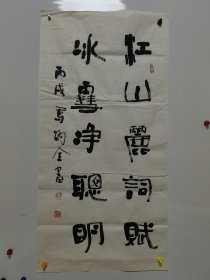 江山麗詞賦
冰雪淨聰明
丙戌寫